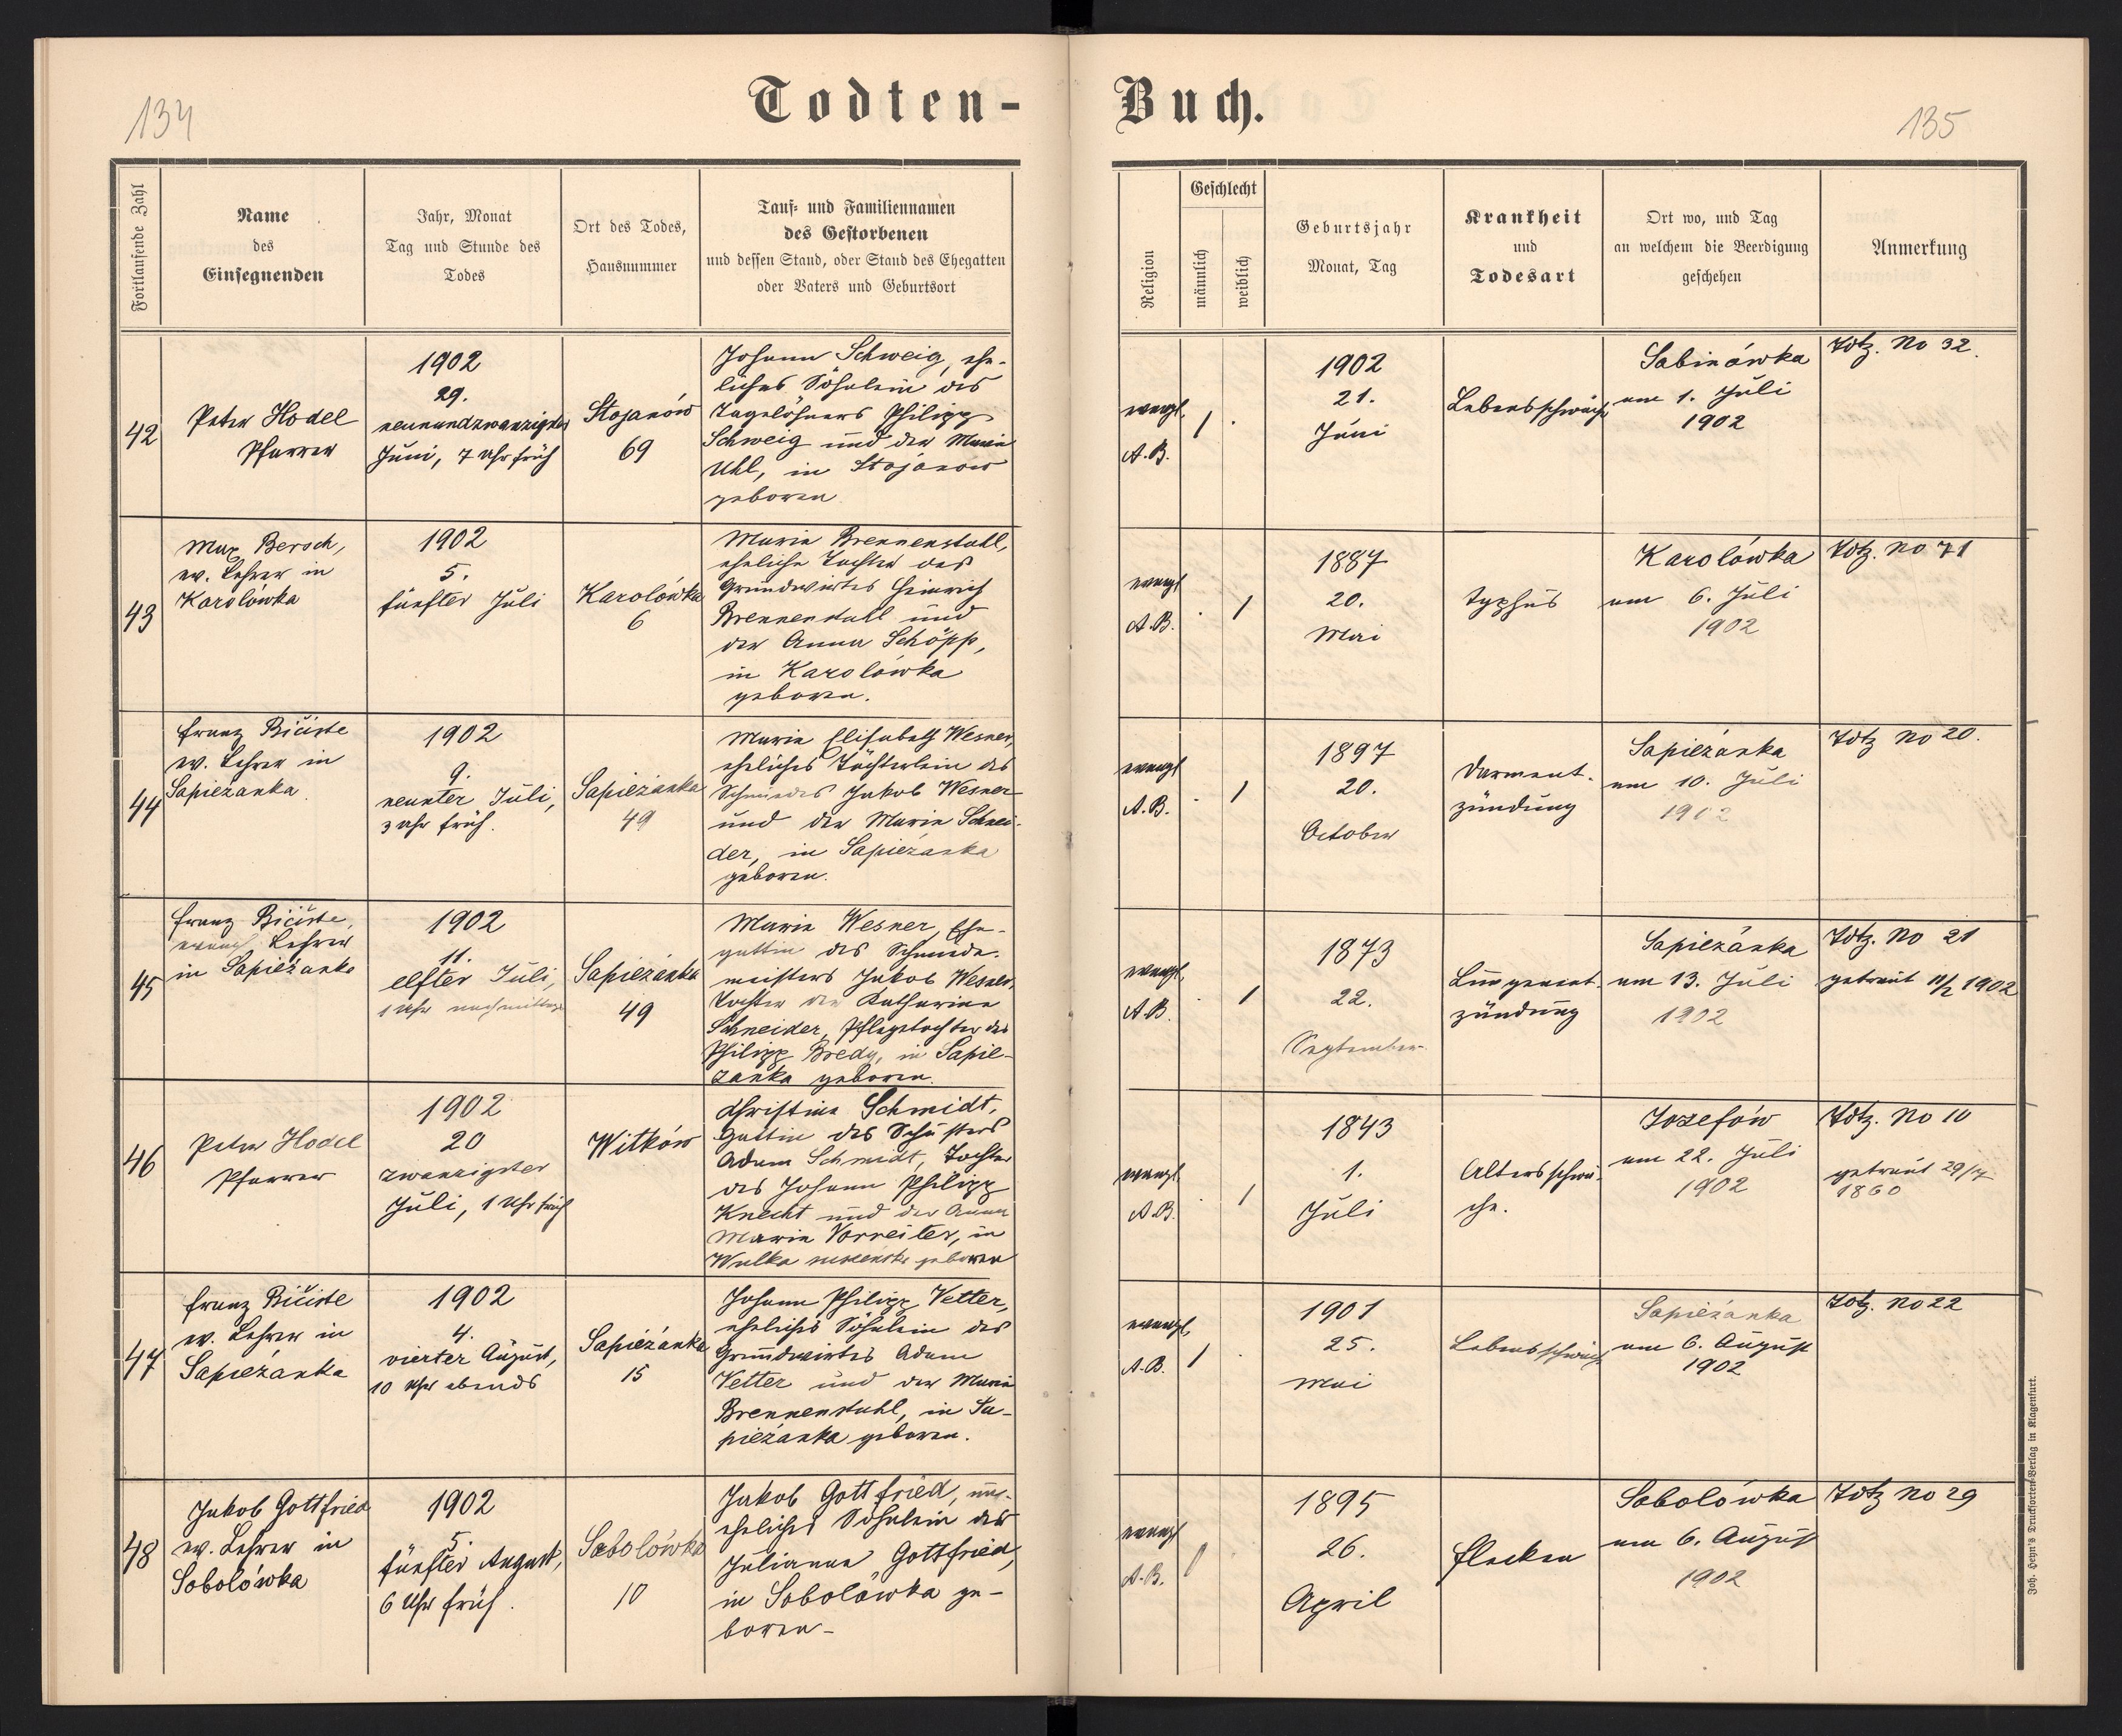 134
Todten-
Buch.
135
Fortlaufende Zahl
Name
des
Einsegnenden
Jahr, Monat
Tag und Stunde des
Todes
Ort des Todes,
Hausnummer
Tauf- und Familiennamen
des Gestorbenen
und dessen Stand, oder Stand des Ehegatten
oder Vaters und Geburtsort
Religion
Geschlecht
männlich
weiblich
Geburtsjahr
Monat, Tag
Krankheit
und
Todesart
Ort wo, und Tag
an welchem die Beerdigung
geschehen
Anmerkung
42
Peter Hodel
Pfarrer
1902
29.
neunundzwanzigster
Juni, 7 Uhr früh
Stojanów
69
Johann Schweig, ehe-
liches Söhnlein des
Tagelöhners Philipp
Schweig und der Maria
Uhl, in Stojanow
geboren
evangl.
A.B.
1
1902
21.
Juni
Lebensschwäche
Sabinówka
am 1. Juli
1902
Tdtz. No 32.
43
Max Bersch,
ev. Lehrer in
Karolówka
1902
5.
fünfter Juli
Karolówka
6
Maria Brennenstuhl,
eheliche Tochter des
Grundwirtes Heinrich
Brennenstuhl und
der Anna Schöpp,
in Karolówka
geboren.
evangl
A.B.
1
1887
20.
Mai
Typhus
Karolówka
am 6. Juli
1902
Tdtz. No 71
44
Franz Bičiste
ev. Lehrer in
Sapieżanka
1902
9.
neunter Juli,
3 Uhr früh.
Sapieżanka
49
Maria Elisabeth Wesner,
eheliches Töchterlein des
Schmiedes Jakob Wesner
und der Maria Schnei-
der, in Sapieżanka
geboren.
evangl
A.B.
1
1897
20.
October
Darment-
zündung
Sapieżanka
am 10. Juli
1902
Tdtz No 20.
45
Franz Bičiste,
evangl Lehrer
in Sapieżanka
1902
11.
elfter Juli,
1 Uhr nachmittag
Sapieżanka
49
Maria Wesner, Ehe-
gattin des Schmiede-
meisters Jakob Wesner,
Tochter der Katharina
Schneider, Pflegetochter des
Philipp Bredy, in Sapie-
żanka geboren.
evangl.
A.B.
1
1873
22.
September
Lungenent-
zündung
Sapieżanka
am 13. Juli
1902
Tdtz. No 21
getraut 11/2 1902
46
Peter Hodel
Pfarrer
1902
20
zwanzigster
Juli, 1 Uhr früh
Witków
Christina Schmidt,
Gattin des Schusters
Adam Schmidt, Tochter
des Johann Philipp
Knecht und der Anna
Maria Vorreiter, in
Wulka geboren
evangl.
A.B.
1
1843
1.
Juli
Altersschwä-
che.
Jozefów
am 22. Juli
1902
Tdtz. No 10
getraut 29/7
1860
47
Franz Bičiste
ev. Lehrer in
Sapieżanka
1902
4.
vierter August,
10 Uhr abends
Sapieżanka
15
Johann Philipp Vetter,
eheliches Söhnlein des
Grundwirtes Adam
Vetter und der Maria
Brennenstuhl, in Sa-
pieżanka geboren.
evangl.
A.B.
1
1901
25.
Mai
Lebensschwäche
Sapieżanka
am 6. August
1902
Tdtz. No 22
48
Jakob Gottfried
ev. Lehrer in
Sobolówka
1902
5.
fünfter August,
6 Uhr früh.
Sobolówka
10
Jakob Gottfried, un-
eheliches Söhnlein der
Julianna Gottfried,
in Sobolówka ge-
boren-
evangl
A.B.
1
1895
26.
April
Flecken
Sobolówka
am 6. August
1902
Tdtz No 29
Joh. Heyn's Drucksorten-Verlag in Klagenfurt.